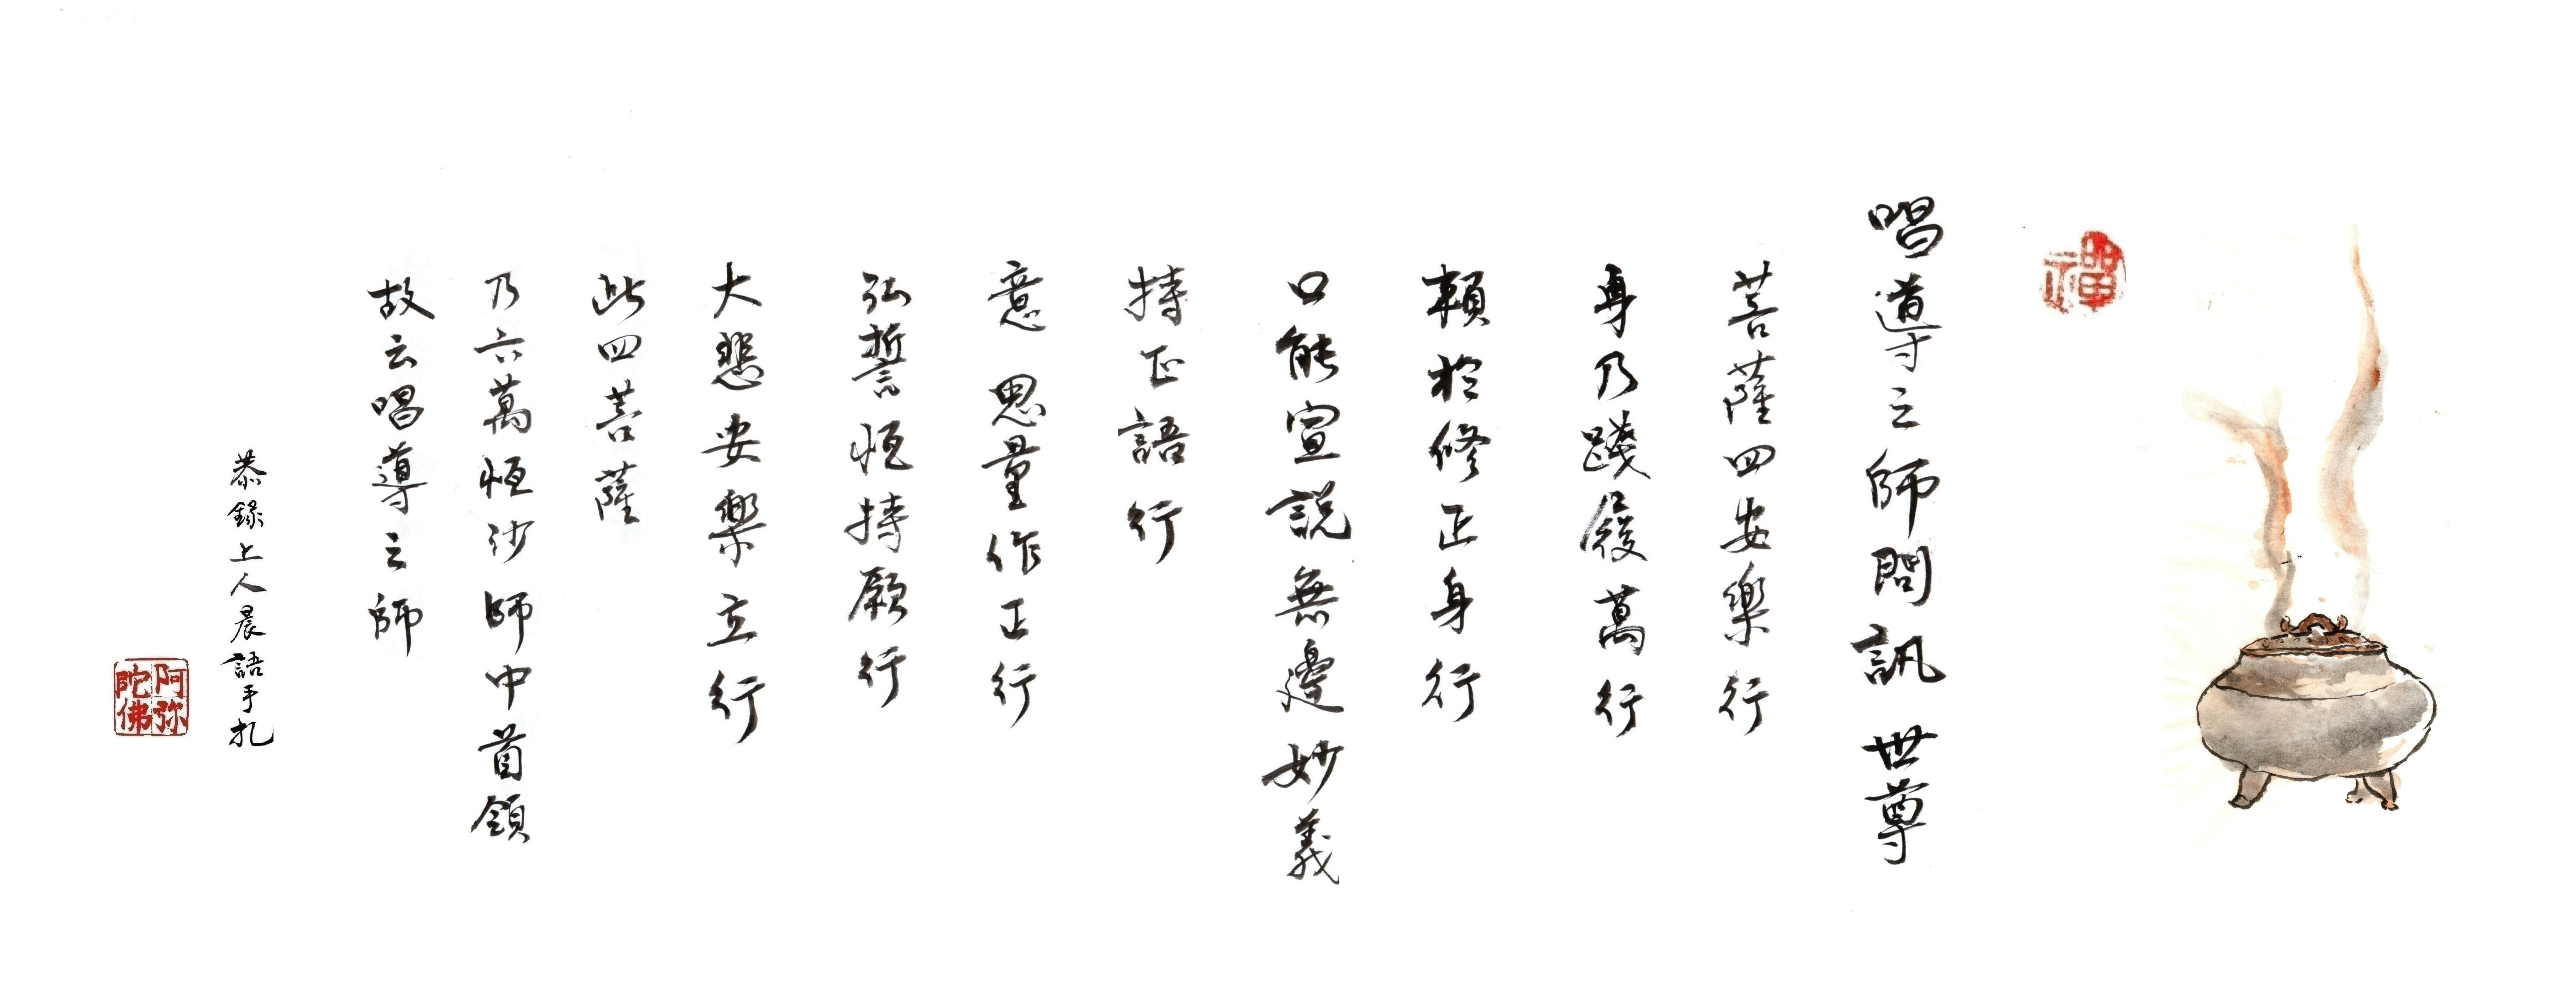 禪
唱導之師問訊世尊
菩薩四安樂行
身乃踐履萬行
賴於修正身行
口能宣說無邊妙義
持正語行
意 思量作正行
弘誓恒持願行
大悲安樂立行
此四菩薩
乃六萬恒沙師中首領
故云唱導之師
恭錄上人晨語手扎
阿弥陀佛